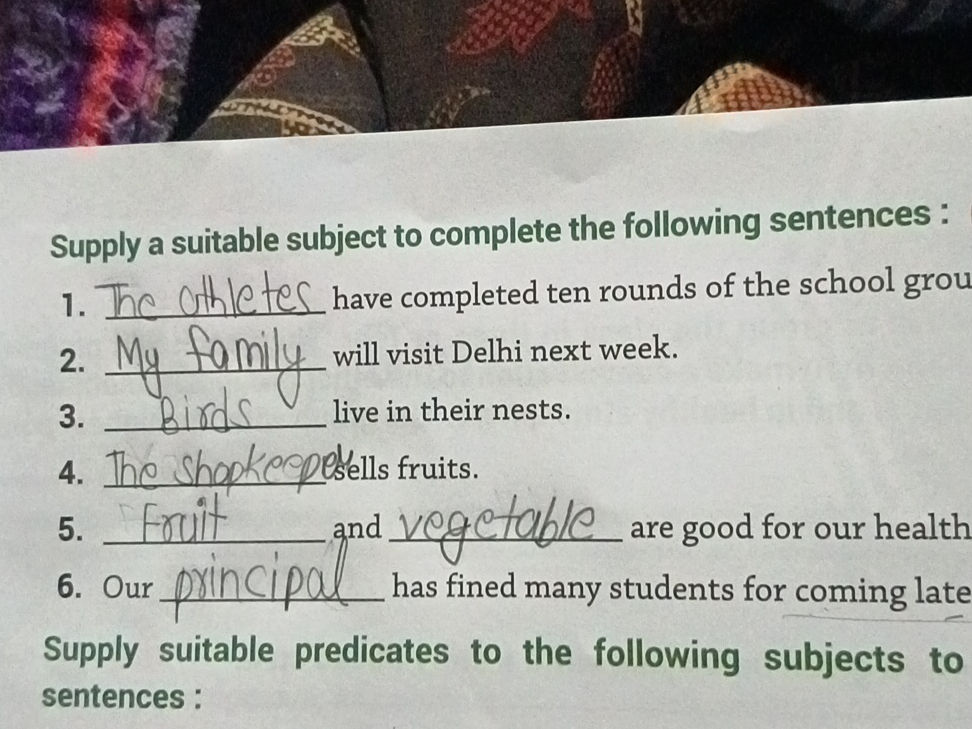 Supply a suitable subject to complete the following sentences :
1. The athletes have completed ten rounds of the school grou
2. My family will visit Delhi next week.
3. Birds live in their nests.
4. The shopkeeper sells fruits.
5. Fruit and vegetable are good for our health
6. Our principal has fined many students for coming late
Supply suitable predicates to the following subjects to
sentences :